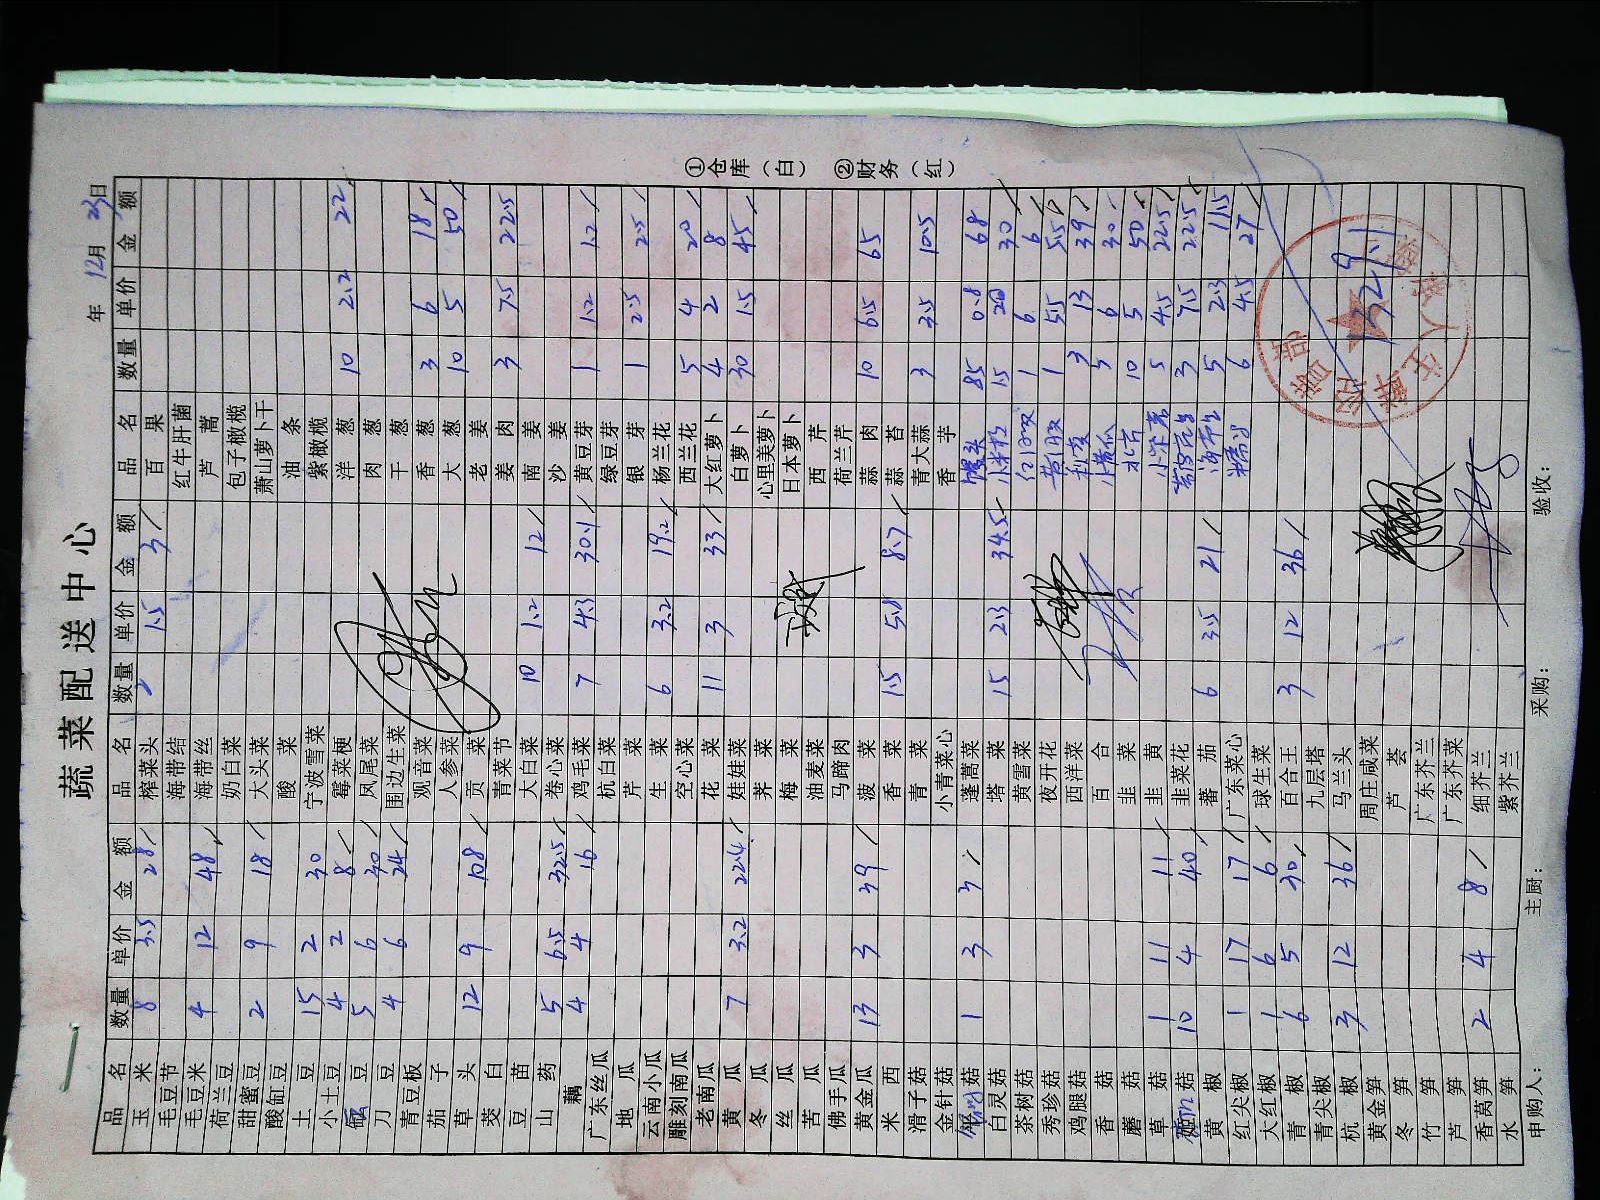 蔬菜配送中心
年 12月 23日
品名 数量 单价 金额 品名 数量 单价 金额 品名 数量 单价 金额
玉米 8 3.5 28 榨菜头 2 1.5 3 百果
毛豆节 海带结 红牛肝菌
毛豆米 4 12 48 海带丝 芦蒿
荷兰豆 奶白菜 包子橄榄
甜蜜豆 2 9 18 大头菜 萧山萝卜干
酸缸豆 酸菜 油条
土豆 15 2 30 宁波雪菜 紫橄榄
小土豆 4 2 8 霉菜梗 洋葱 10 2.2 22
豆 5 6 30 凤尾菜 肉葱
刀豆 4 6 24 围边生菜 干葱
青豆板 观音菜 香葱 3 6 18
茄子 人参菜 大葱 10 5 50
草头 12 9 108 贡菜 老姜
茭白 青菜节 姜肉 3 7.5 22.5
豆苗 大白菜 10 1.2 12 南姜
山药 5 6.5 32.5 卷心菜 沙姜
藕 4 4 16 鸡毛菜 7 4.3 30.1 黄豆芽 1 1.2 1.2
广东丝瓜 杭白菜 绿豆芽
地瓜 芹菜 银芽 1 2.5 2.5
云南小瓜 生菜 6 3.2 19.2 杨兰花
雕刻南瓜 空心菜 西兰花 5 4 20
老南瓜 花菜 11 3 33 大红萝卜 4 2 8
黄瓜 7 3.2 22.4 娃娃菜 白萝卜 30 1.5 45
冬瓜 荠菜 心里美萝卜
丝瓜 梅菜 日本萝卜
苦瓜 油麦菜 西芹
佛手瓜 马蹄肉 荷兰芹
黄金瓜 13 3 39 菠菜 蒜肉 10 6.5 65
米西 香菜 1.5 5.8 8.7 蒜苔
滑子菇 青菜 青大蒜 3 3.5 10.5
金针菇 小青菜心 香芋
菇 1 3 3 蓬蒿菜 馒头 85 0.8 68
白灵菇 塔菜 15 2.3 34.5 15 30
茶树菇 黄雪菜 1 6 6
秀珍菇 夜开花 1 5.5 5.5
鸡腿菇 西洋菜 3 13 39
香菇 百合 小黄瓜 5 6 30
蘑菇 韭菜 10 5 50
草菇 1 11 11 韭黄 5 4.5 22.5
菇 10 4 40 韭菜花 3 7.5 22.5
黄椒 蕃茄 6 3.5 21 5 2.3 11.5
红尖椒 1 17 17 广东菜心 6 4.5 27
大红椒 1 6 6 球生菜
青椒 6 5 30 百合王 3 12 36
青尖椒 九层塔
杭椒 3 12 36 马兰头 1329.1
黄金笋 周庄咸菜
冬笋 芦荟
竹笋 广东芥兰
芦笋 广东芥菜
香莴笋 2 4 8 细芥兰
水笋 紫芥兰
申购人: 主厨: 采购: 验收:
①仓库(白) ②财务(红)